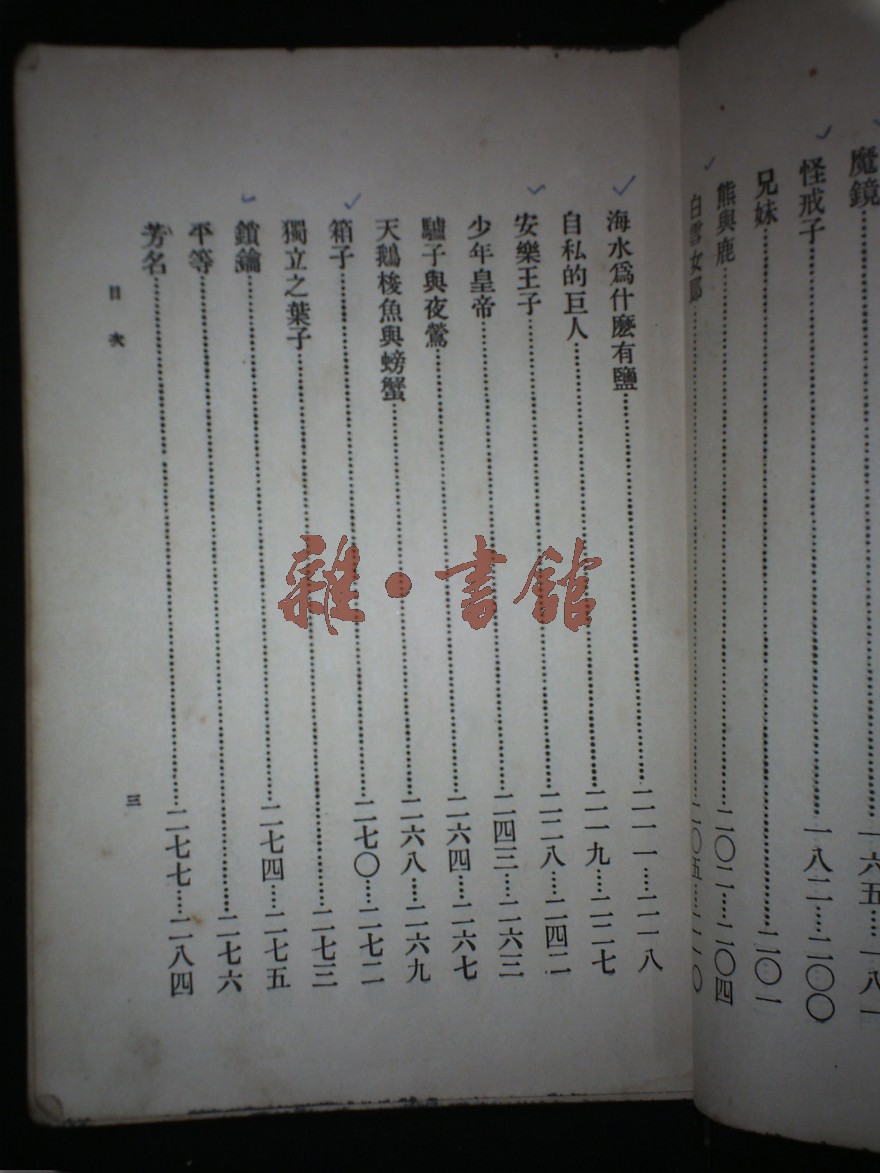 魔鏡……一六五……一八一
怪戒子……一八二……二〇〇
兄妹……二〇一
熊與鹿……二〇二……二〇四
白雪女郎……二〇五……二一〇
海水爲什麽有鹽……二一一……二一八
自私的巨人……二一九……二二七
安樂王子……二二八……二四二
少年皇帝……二四三……二六三
驢子與夜鶯……二六四……二六七
天鵝梭魚與螃蟹……二六八……二六九
箱子……二七〇……二七二
獨立之葉子……二七三
鎖鑰……二七四……二七五
平等……二七六
芳名……二七七……二八四
目次
三
雜·書館